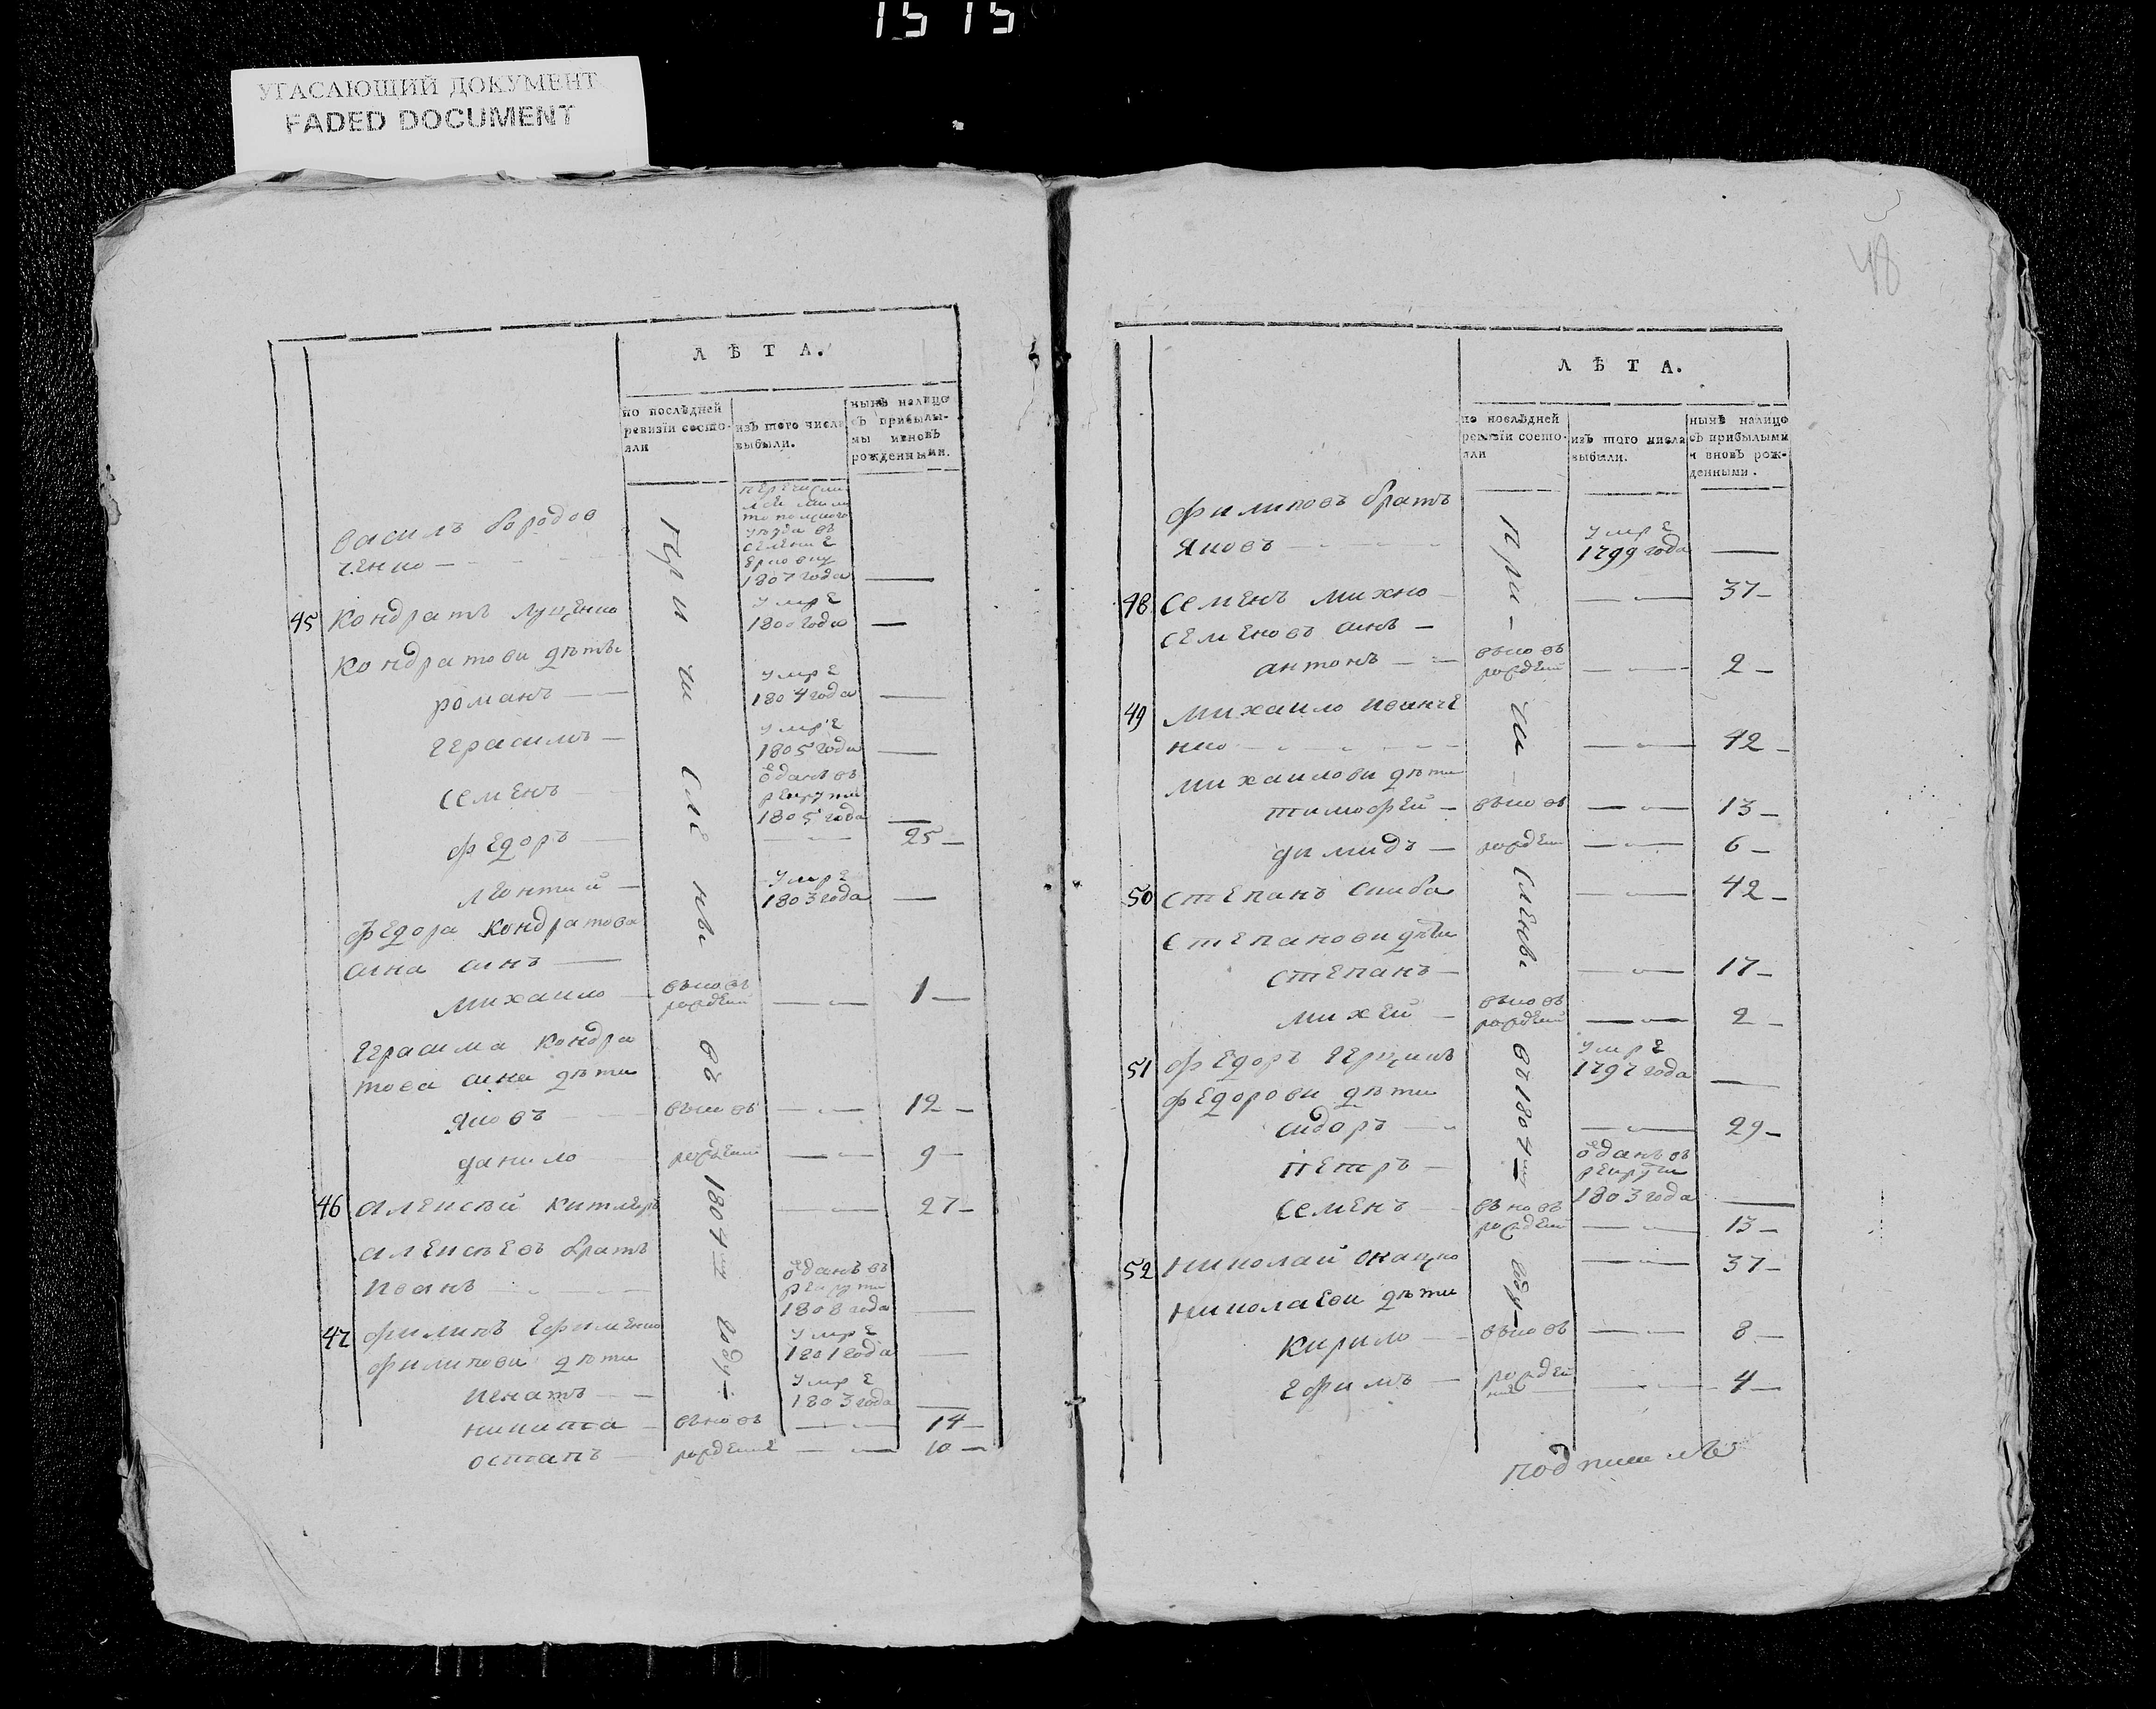 15 15
УГАСАЮЩИЙ ДОКУМЕНТ
FADED DOCUMENT
ЛѢТА.
по послѣдней ревизїи состояли
изъ того числа выбыли.
нынѣ налицо съ прибылымы ивновь рожденными.
василъ бородов
ченко —
селение
1807 года —
45 Кондратъ луценко умре 1800 года —
Кондратови дѣти
романъ — умре 1804 года —
Герасимъ — умре 1805 года —
Семенъ — ѿданъ въ рекрути 1805 года —
федоръ — 25 —
леонтий — умре 1803 года —
федора Кондратова
сина синъ —
михаило — въновъ рожден — 1 —
Герасима Кондра
това сина дѣти
Яковъ — вновъ — 12 —
данило рожден — 9 —
46 алексѣй — 27 —
алексѣевъ братъ
иванъ — ѿданъ въ рекрути 1808 года —
47 филипъ Ефименко умре 1801 года —
филипови дѣти
игнатъ — умре 1803 года —
никита — въновъ — 14 —
остапъ — рождение — 10 —
При чи сле нъ въ 1804 году —
48
ЛѢТА.
по послѣдней ревизїи состояли
изъ того числа выбыли.
нынѣ налицо съ прибылыми и вновь рожденными.
филиповъ братъ
Яковъ — умре 1799 года —
48 Семенъ михно — 37 —
семеновъ синъ —
антонъ — въновъ рожден — 2 —
49 михаило иванче
нко — 42 —
михаилови дѣти
тимофей — въновъ — 13 —
димидъ — рожден — 6 —
50 степанъ скиба — 42 —
степанови дѣти
степанъ — 17 —
михей — въновъ рожден — 2 —
51 федоръ умре 1797 года —
федорови дѣти
сидоръ — 29 —
петръ — ѿданъ въ рекрути 1803 года —
семенъ — въновъ рожден — 13 —
52 николай — 37 —
николаеви дѣти
Кирило — въновъ — 8 —
Ефимъ — рожден — 4 —
При — чи — сленъ въ 1804 году —